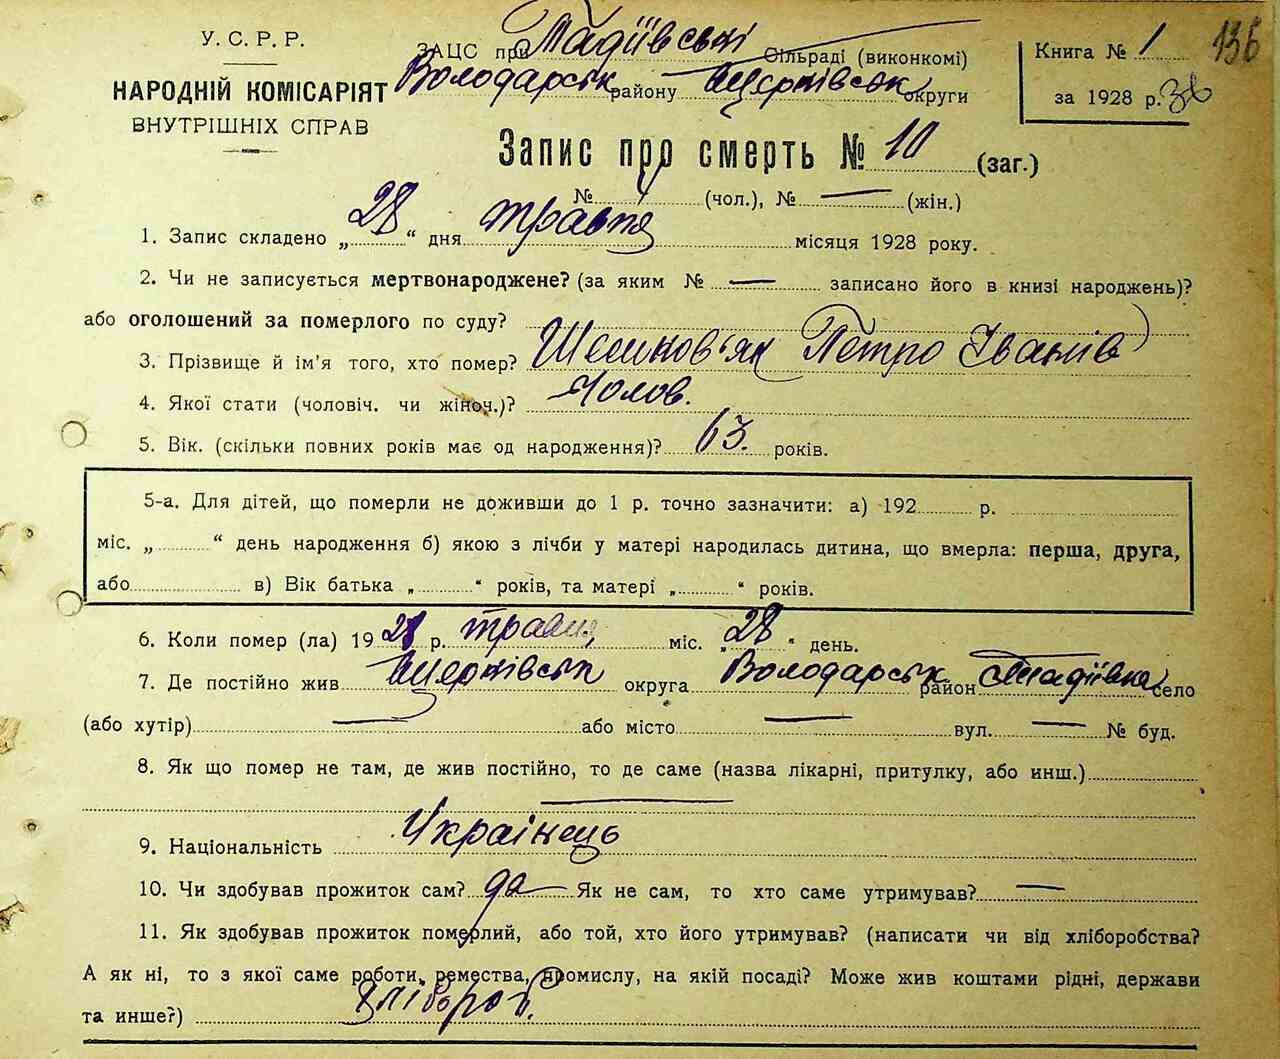 У. С. Р. Р.
НАРОДНІЙ КОМІСАРІЯТ
ВНУТРІШНІХ СПРАВ
ЗАЦС при Тадіївські Сільраді (виконкомі)
Володарськ району Шерківськ округи
Книга № 1
за 1928 р.
136
38
Запис про смерть № 10 (заг.)
№ (чол.), № — (жін.)
1. Запис складено „ 28 “ дня травня місяця 1928 року.
2. Чи не записується мертвонароджене? (за яким № — записано його в книзі народжень)?
або оголошений за померлого по суду?
3. Прізвище й ім'я того, хто помер? Петро Іванів
4. Якої стати (чоловіч. чи жіноч.)? Чолов.
5. Вік. (скільки повних років має од народження)? 63. років.
5-а. Для дітей, що померли не доживши до 1 р. точно зазначити: а) 192 р.
міс. „ “ день народження б) якою з лічби у матері народилась дитина, що вмерла: перша, друга,
або в) Вік батька „ “ років, та матері „ “ років.
6. Коли помер (ла) 1928 р. травня міс. „ 28 “ день.
7. Де постійно жив округа Володарськ район Тадіївка село
(або хутір) — або місто — вул. — № буд.
8. Як що помер не там, де жив постійно, то де саме (назва лікарні, притулку, або инш.)
—
9. Національність Українець
10. Чи здобував прожиток сам? да Як не сам, то хто саме утримував? —
11. Як здобував прожиток померлий, або той, хто його утримував? (написати чи від хліборобства?
А як ні, то з якої саме роботи, ремества, промислу, на якій посаді? Може жив коштами рідні, держави
та инше?) хлібороб.